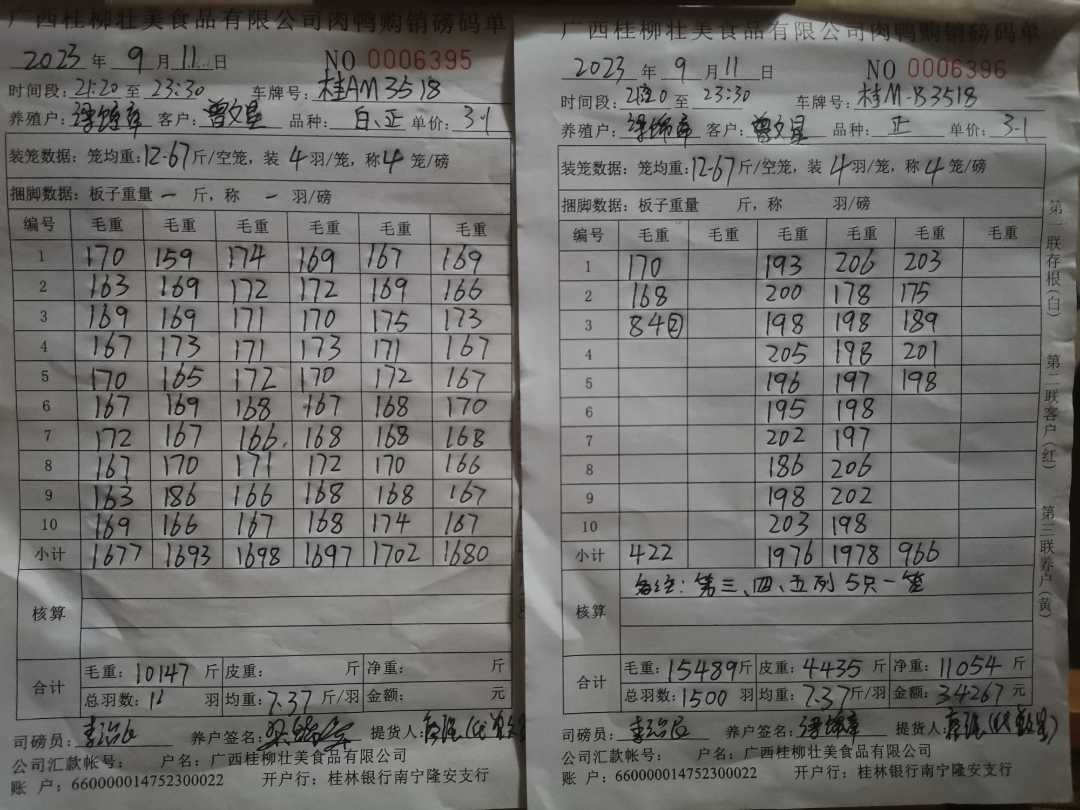 广西桂柳壮美食品有限公司肉鸭购销磅码单
2023 年 9 月 11 日 NO 0006395
时间段: 21:20 至 23:30 车牌号: 桂AM3518
养殖户: 客户: 曾文星 品种: 白、正 单价: 3.1
装笼数据: 笼均重: 12.67 斤/空笼, 装 4 羽/笼, 称 4 笼/磅
捆脚数据: 板子重量 一 斤, 称 一 羽/磅
编号 毛重 毛重 毛重 毛重 毛重 毛重
1 170 159 174 169 167 169
2 163 169 172 172 169 166
3 169 169 171 170 175 173
4 167 173 171 173 171 167
5 170 165 172 170 172 167
6 167 169 168 167 168 170
7 172 167 166 168 168 168
8 167 170 171 172 170 166
9 163 186 166 168 168 167
10 169 166 167 168 174 167
小计 1677 1693 1698 1697 1702 1680
核算
合计 毛重: 10147 斤 皮重: 斤 净重: 斤
总羽数: 羽 均重: 7.37 斤/羽 金额: 元
司磅员: 养户签名: 提货人:
公司汇款帐号: 户名: 广西桂柳壮美食品有限公司
账 户: 660000014752300022 开户行: 桂林银行南宁隆安支行
广西桂柳壮美食品有限公司肉鸭购销磅码单
2023 年 9 月 11 日 NO 0006396
时间段: 21:20 至 23:30 车牌号: 桂M·B3518
养殖户: 客户: 曾文星 品种: 正 单价: 3.1
装笼数据: 笼均重: 12.67 斤/空笼, 装 4 羽/笼, 称 4 笼/磅
捆脚数据: 板子重量 斤, 称 羽/磅
编号 毛重 毛重 毛重 毛重 毛重 毛重
1 170 193 206 203
2 168 200 178 175
3 84② 198 198 189
4 205 198 201
5 196 197 198
6 195 198
7 202 197
8 186 206
9 198 202
10 203 198
小计 422 1976 1978 966
核算 备注: 第三、四、五列 5只一笼
合计 毛重: 15489 斤 皮重: 4435 斤 净重: 11054 斤
总羽数: 1500 羽 均重: 7.37 斤/羽 金额: 34267 元
司磅员: 养户签名: 提货人:
公司汇款帐号: 户名: 广西桂柳壮美食品有限公司
账 户: 660000014752300022 开户行: 桂林银行南宁隆安支行
第一联存根(白)
第二联客户(红)
第三联养户(黄)